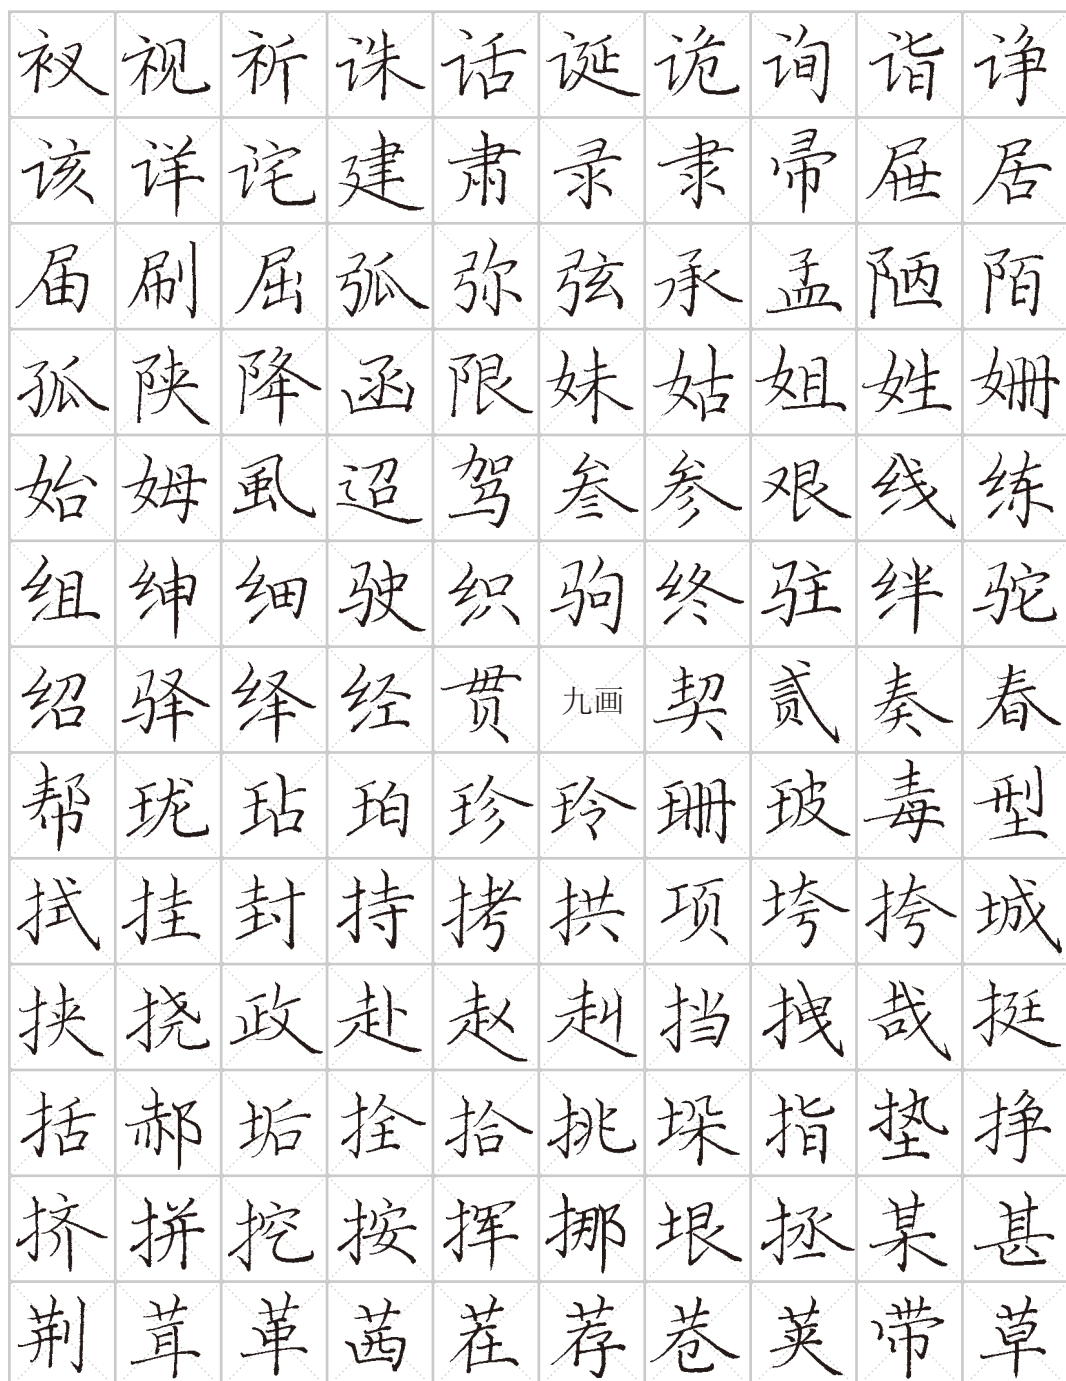 衩视祈诛话诞诡询诣诤
该详诧建肃录隶帚屉居
届刷屈弧弥弦承孟陋陌
孤陕降函限妹姑姐姓姗
始姆虱迢驾叁参艰线练
组绅细驶织驹终驻绊驼
绍驿绎经贯九画契贰奏春
帮珑玷珀珍玲珊玻毒型
拭挂封持拷拱项垮挎城
挟挠政赴赵赳挡拽哉挺
括郝垢拴拾挑垛指垫挣
挤拼挖按挥挪垠拯某甚
荆茸革茜茬荐巷荚带草